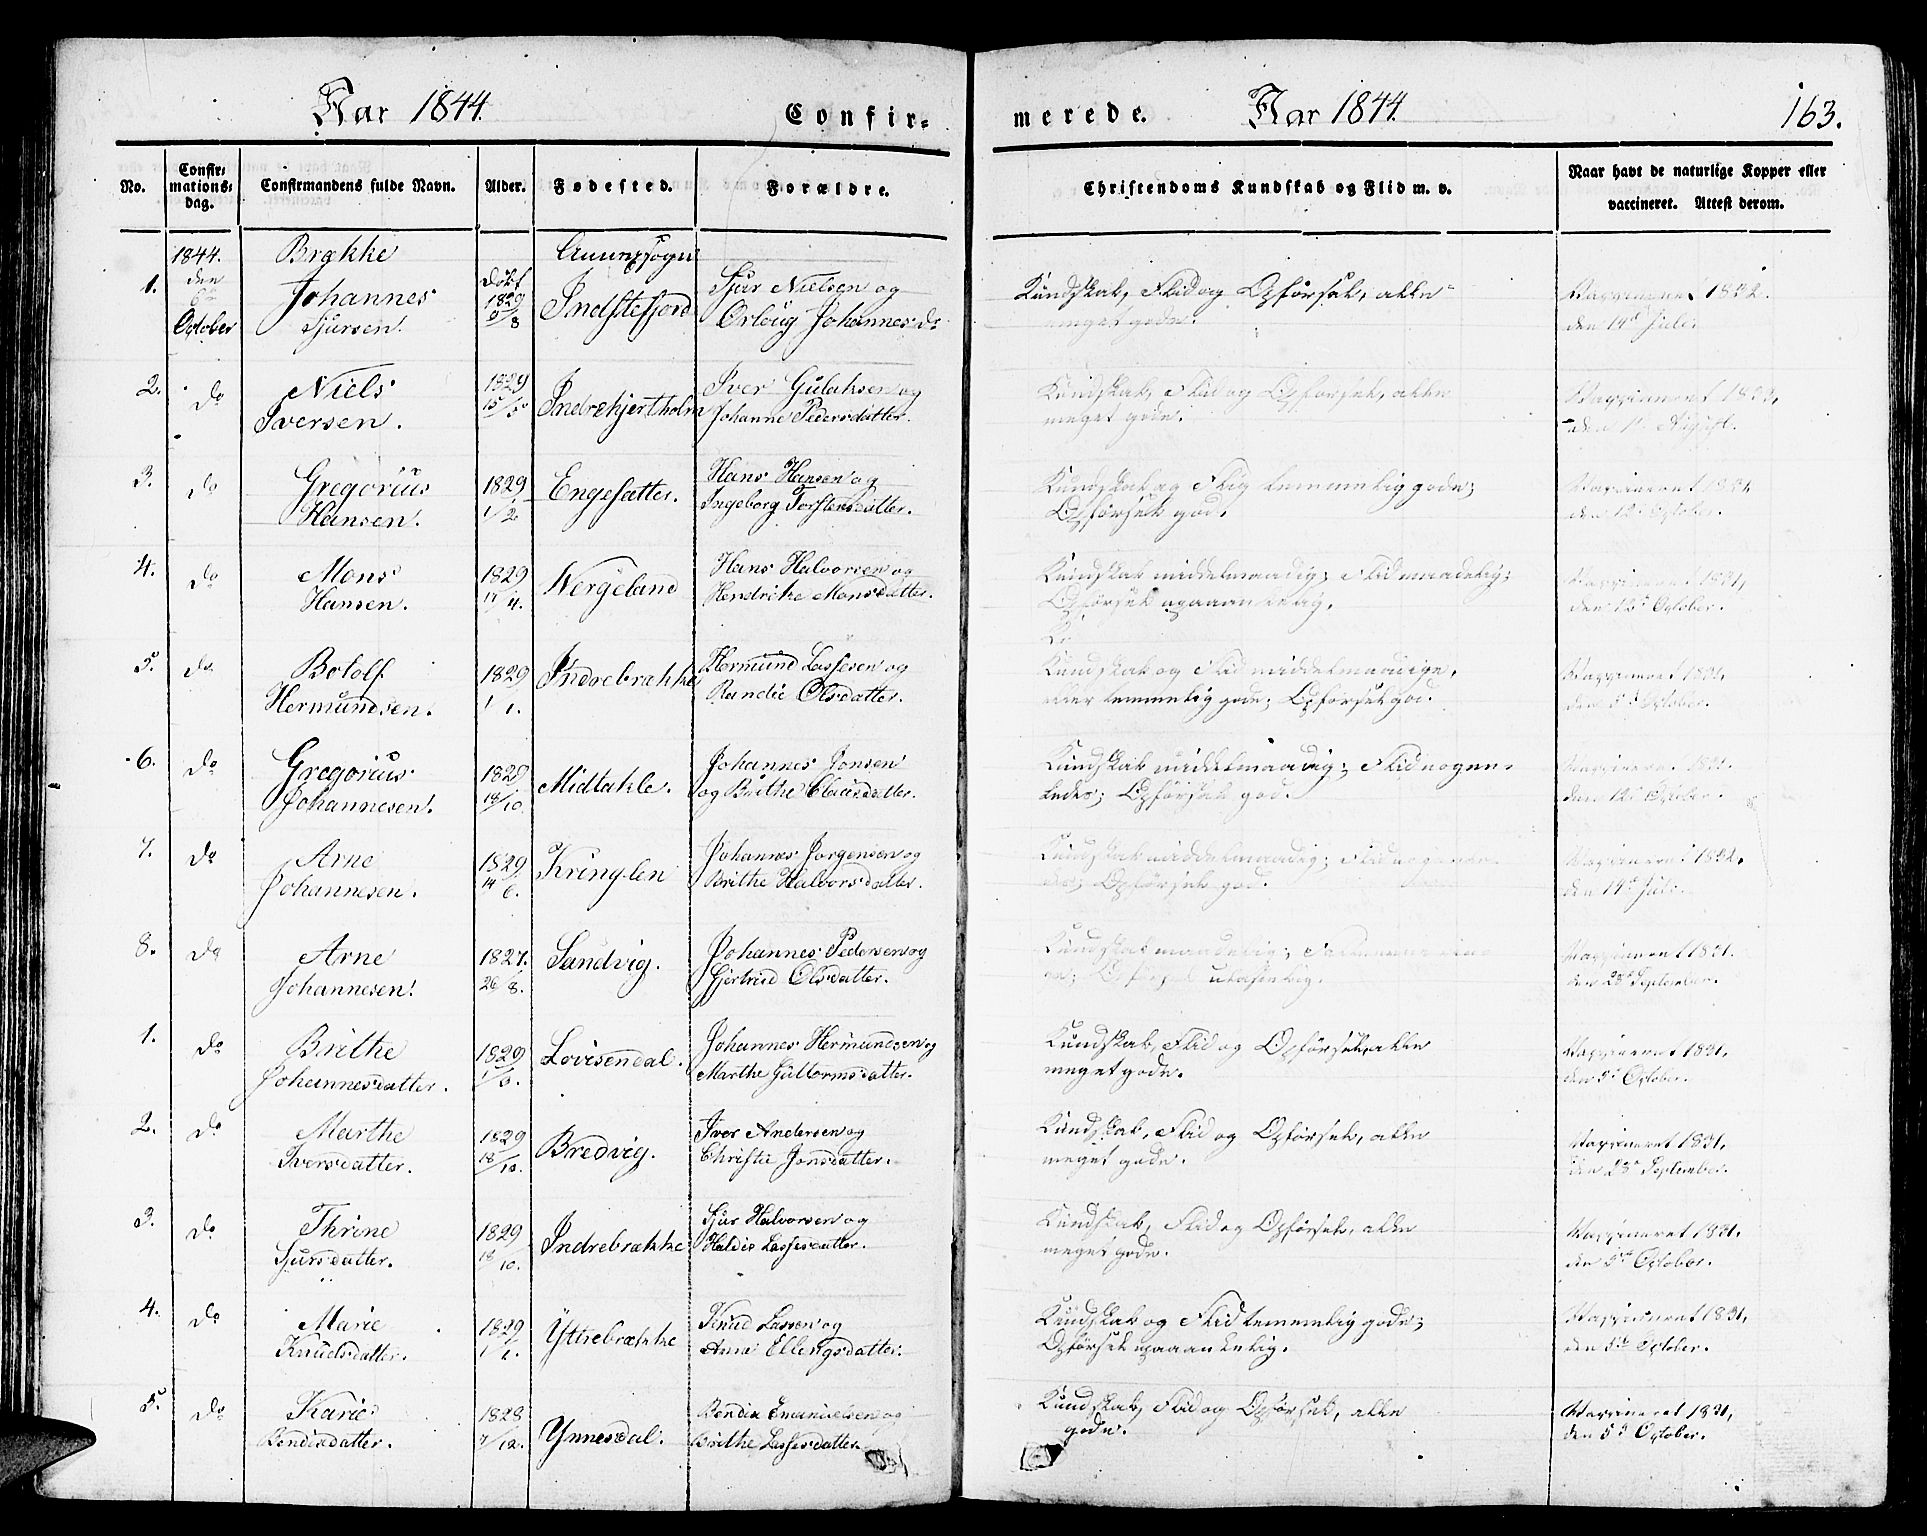 Aar 1844. Confirmerede. Aar 1844. 163.
No. Confirmationsdag. Confirmandens fulde Navn. Alder. Fødested. Forældre. Christendoms Kundskab og Flid m. v. Naar havt de naturlige Kopper eller vaccineret. Attest derom.
1844. Brække Annexsogn
1. den 6te October Johannes Sjursen. Døbt 1829 9/8 Indstefjord Sjur Nielsen og Orloug Johannesdr Kundskab, Flid og Opførsel, alle meget gode. Vaccineret 1832. den 14de Juli.
2. do Niels Iversen. 1829 15/5 Indrehjertholm Iver Gulaksen og Johanne Pedersdatter. Kundskab, Flid og Opførsel, alle meget gode. Vaccineret 1833, den 1. August.
3. do Gregorius Hansen. 1829 1/2 Engesætter. Hans Hansen og Ingeborg Torstensdatter. Kundskab og Flid temmelig gode; Opførsel god. Vaccineret 1831 den 12. October.
4. do Mons Hansen. 1829 17/4. Nergeland Hans Halvorsen og Hendrike Monsdatter. Kundskab middelmaadig; Flid maadelig; Opførsel upaaankelig. Vaccineret 1831, den 12. October.
5. do Botolf Hermundsen. 1829 1/1. Indrebrække Hermund Lassesen og Randie Olsdatter. Kundskab og Flid middelmaadige, eller temmelig gode; Opførsel god. Vaccineret 1831, den 5. October.
6. do Gregorius Johannesen. 1829 18/10. Midtakle. Johannes Jonsen og Brithe Clausdatter. Kundskab middelmaadig; Flid nogenledes; Opførsel god. Vaccineret 1831. den 12. October.
7. do Arne Johannesen. 1829 14/6. Kringlen Johannes Jorgensen og Brithe Halvorsdatter. Kundskab middelmaadig; Flid Opførsel god. Vaccineret 1832. den 14de Juli.
8. do Arne Johannesen. 1827. 26/8. Sandvig. Johannes Pedersen og Gjertrud Olsdatter. Kundskab maadelig; Vaccineret 1831. den 28. September.
1. do Brithe Johannesdatter. 1829 Lovisendal. Johannes Hermundsen og Marthe Guttormsdatter. Kundskab, Flid og Opførsel, alle meget gode. Vaccineret 1831, den 5. October.
2. do Marthe Iversdatter. 1829 18/10. Bredvig. Iver Andersen og Christie Jonsdatter. Kundskab, Flid og Opførsel, alle meget gode. Vaccineret 1831, den 28. September.
3. do Thrine Sjursdatter. 1829 18/10. Indrebrække Sjur Halvorsen og Haldis Lassesdatter. Kundskab, Flid og Opførsel, alle meget gode. Vaccineret 1831, den 5te October.
4. do Marie Knudsdatter. 1829 1/1. Yttrebrække Knud Lassen og Anne Ellengsdatter. Kundskab og Flid temmelig gode; Opførsel upaaankelig. Vaccineret 1831, den 5te October.
5. do Karie Bendixdatter. 1828 7/12. Ynnesdal. Bendix Emanuelsen og Brithe Lassesdatter. Kundskab, Flid og Opførsel, alle gode. Vaccineret 1831, den 5. October.